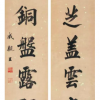 芝蓋雲
銅盤露
成親王